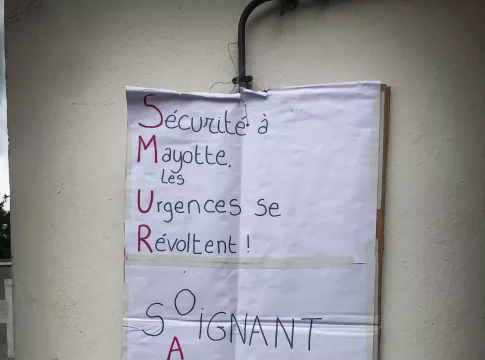 Sécurité à
Mayotte,
les
Urgences se
Révoltent !
SOIGNANT
A